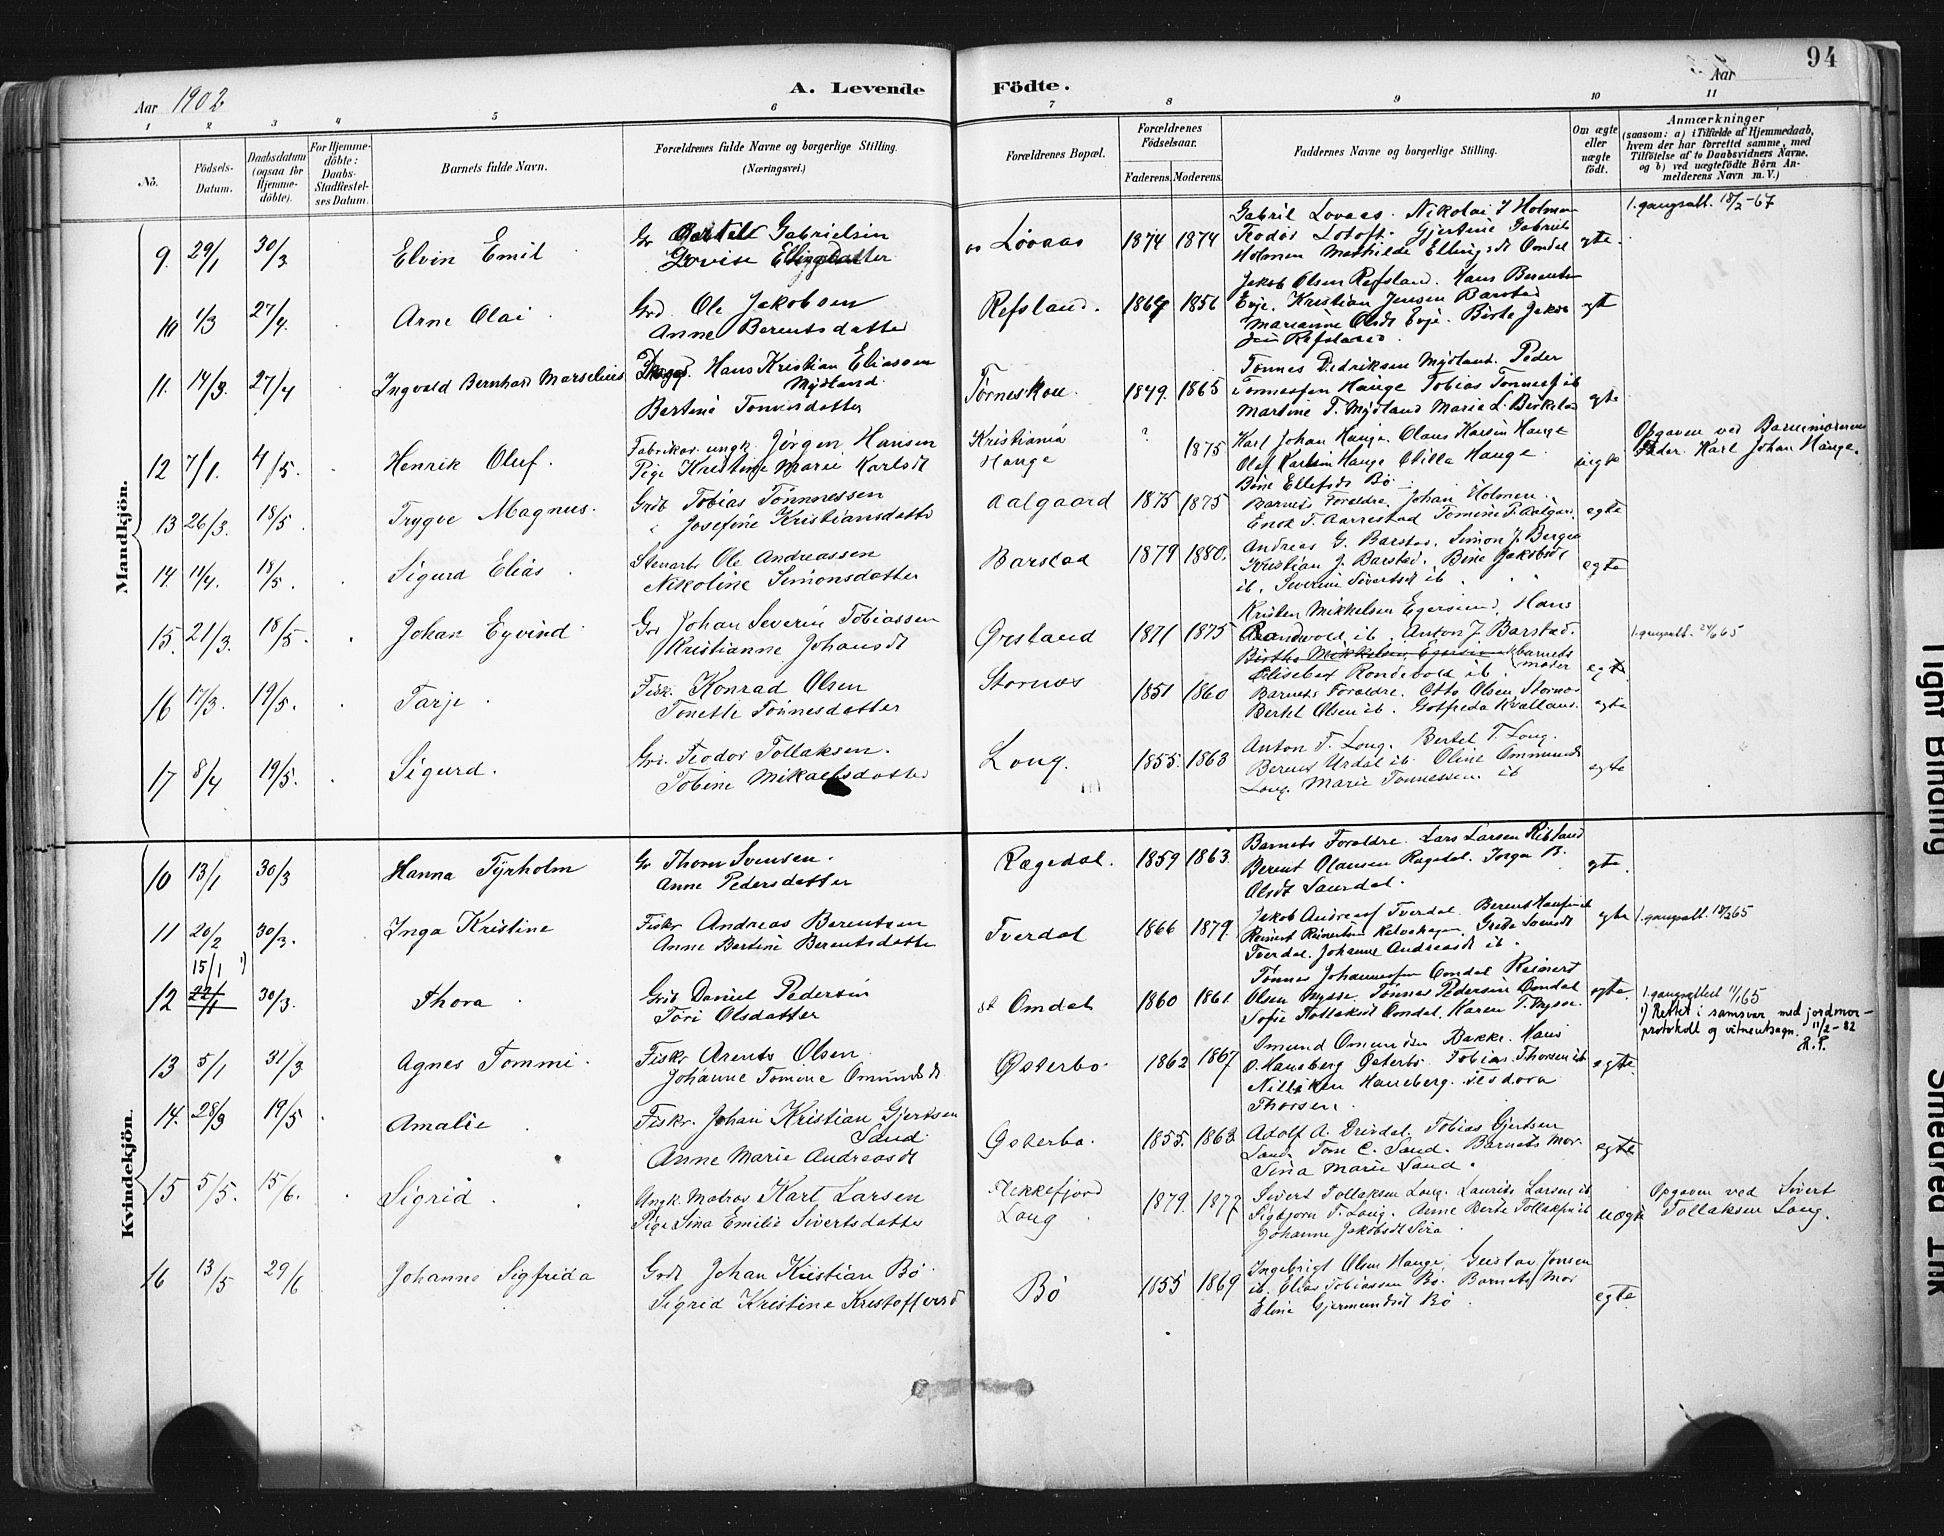 94
Aar 1902
A. Levende Födte.
Aar
1 2 3 4 5 6 7 8 9 10 11
No.
Födsels-Datum.
Daabsdatum (ogsaa for Hjemme-döbte).
For Hjemme-döbte: Daabs-Stadfæstel-ses Datum.
Barnets fulde Navn.
Forældrenes fulde Navne og borgerlige Stilling. (Næringsvei.)
Forældrenes Bopæl.
Forældrenes Födselsaar.
Faderens. Moderens.
Faddernes Navne og borgerlige Stilling.
Om ægte eller uægte födt.
Anmærkninger
(saasom: a) i Tilfælde af Hjemmedaab, hvem der har forrettet samme, med Tilföielse af to Daabsvidners Navne, og b) ved uægtefödte Börn Anmelderens Navn m. V.)
Mandkjön.
9. 29/1 30/3 Elvin Emil
Gr Gabrielsen
Lovise
Løvaas 1874 1874
Gabriel Lovaas. Nikolai J Holmen
Teodor Lotoft. Gjertine Gabriels
Holmen Mathilde Ellingsdt Omdal
egte.
1. gangsatt. 18/2-67
10 1/3 27/4. Arne Olai
Grd. Ole Jakobsen
Anne Berentsdatter
Refsland. 1864 1856
Jakob Olsen Refsland. Hans Berentsen
Evje. Kristian Jensen Barstad
Marianne Olsdt Evje. Birte Jakob
Refsland
egt
11. 14/3. 27/4 Ingvald Bernhard Marselius
Hans Kristian Eliassen
Mydland.
Bertine Tonnesdatter
Torneskou 1849. 1865
Tonnes Didriksen Mydland. Peder
Tonnessen Hauge Tobias Tonnes ib
Martine T. Mydland Marie L. Birkeland
egte
12 7/1. 4/5. Henrik Oluf.
Fabrikar. ungk. Jörgen Hansen
Pige Kristine Marie Karlsdt
Kristiania
Hauge
? 1875
Karl Johan Hauge. Olaus Karsin Hauge
Olaf Karlsen Hauge Otilla Hauge.
Bine Ellefsdt Bö
uegte
Opgaven ved Barnemoderens
Fader. Karl Johan Hauge.
13 26/3. 18/5. Trygve Magnus.
Grdb Tobias Tönnessen
Josefine Kristiansdatter
Aalgaard 1875 1875
Barnets Foraldre. Johan Holmen.
Enok T. Aarrestad Tomine T. Aalgar.
egte
14 11/4. 18/5. Sigurd Elias
Stenarb Ole Andreassen
Nikoline Simonsdatter
Barstad 1879 1880.
Andreas G. Barstad. Simon J. Bergen
Kristian J. Barstad. Bine Jakobsdt
ib. Severine Sivertsdt ib.
egte
15. 21/3. 18/5. Johan Eyvind
Grd Johan Severin Tobiassen
Kristianne Johansdt
Ørsland 1871 1875
Kristen Mikkelsen Egersund, Hans
Randvold ib. Anton J. Barstad.
Birthe Mikkelsen Egersund barnets moder
Elisebet Rondevold ib.
egte
1. gangsatt. 24/6 65
16 17/3. 19/5. Tarje
Fisk. Konrad Olsen
Tonette Tönnesdatter
Stornes 1851 1860
Barnets Foraldre. Otto Olsen Stornes
Bertel Olsen ib. Gotfreda Kvallans.
egte
17 8/4 19/5. Sigurd.
Gri. Teodor Tollaksen.
Tobine Mikaelsdatter
Loug. 1855. 1863
Anton T. Loug. Bertel T. Loug.
Berent Urdal ib Oline Ommunds
Loug. Marie Tonnessen. ib
egte
Kvindekjön.
10 13/1 30/3 Hanna Tyrholm
Gr Thorn Svensen.
Anne Pedersdatter
Rægedal. 1859 1863.
Barnets Foraldre. Lars Larsen Ribland
Berent Olausen Ragedal. Inga B.
Olsdt Saurdal.
egte.
11 20/2 30/3. Inga Kristine
Fiskr Andreas Berentsen
Anne Bertine Berentsdatter
Tverdal 1866 1879.
Jakob Andreas Tverdal. Berent
Reinert Reinertsen Kelvehagen. Grete Svensdt
Tverdal. Johanne Andreasdt ib.
egte
1. gangsatt. 13/3 65
12 15/1 1) 22/1 30/3. Thora
Grdb Daniel Pedersen
Tori Olsdatter
st Omdal 1860 1861.
Tönnes Johannessen Omdal Reinert
Olsen Mysse. Tönnes Pedersen Omdal
Sofie Tollaksdt Omdal. Karen T. Mysse.
egte.
1. gangsattest 11/1 65
1) Rettet i samsvar med jordmor-
protokoll og vitneutsagn. 11/2-82
R.P.
13 5/1 31/3 Agnes Tommi.
Fiskr Arents Olsen
Johanne Tomine Omundsdt
Østerbo. 1862 1867
Omund Omundsen Bakke. Hans
O. Hansberg Østerbo. Tobias Thorsen ib
Nilliken Haneberg. Tesdora
Thorsen.
egte.
14. 28/3 19/5 Amalie
Fiskr. Johan Kristian Gjertsen
Sand.
Anne Marie Andreasdt
Østerbo. 1855. 1863
Adolf A. Drivdal. Tobias Gjertsen
Sand Tom C. Sand. Barnets Mor.
Sina Marie Sand.
egte
15 5/5. 15/6. Sigrid.
Ungk. Matros Karl Larsen
Pige Sina Emilie Sivertsdatter
Flekkefjord
Loug
1879. 1877
Sivert Tollaksen Loug. Laurits Larsen ib
Sigbjorn T. Loug. Anne Berte Tollaksen ib
Johanne Jakobsdt Sira.
uægte
Opgaven ved Sivert
Tollaksen Loug.
16 13/5 29/6 Johanne Sigfrida
Grdb Johan Kristian Bø
Sigrid Kristine Kristoffersd
Bö 1855 1869
Ingebrigt Olsen Hauge, Gustav Jonsen
ib. Elias Tobiassen Bö. Barnets Mor
Eline Gjermundsdt Bö.
egte.
Tight Binding
Smeared Ink